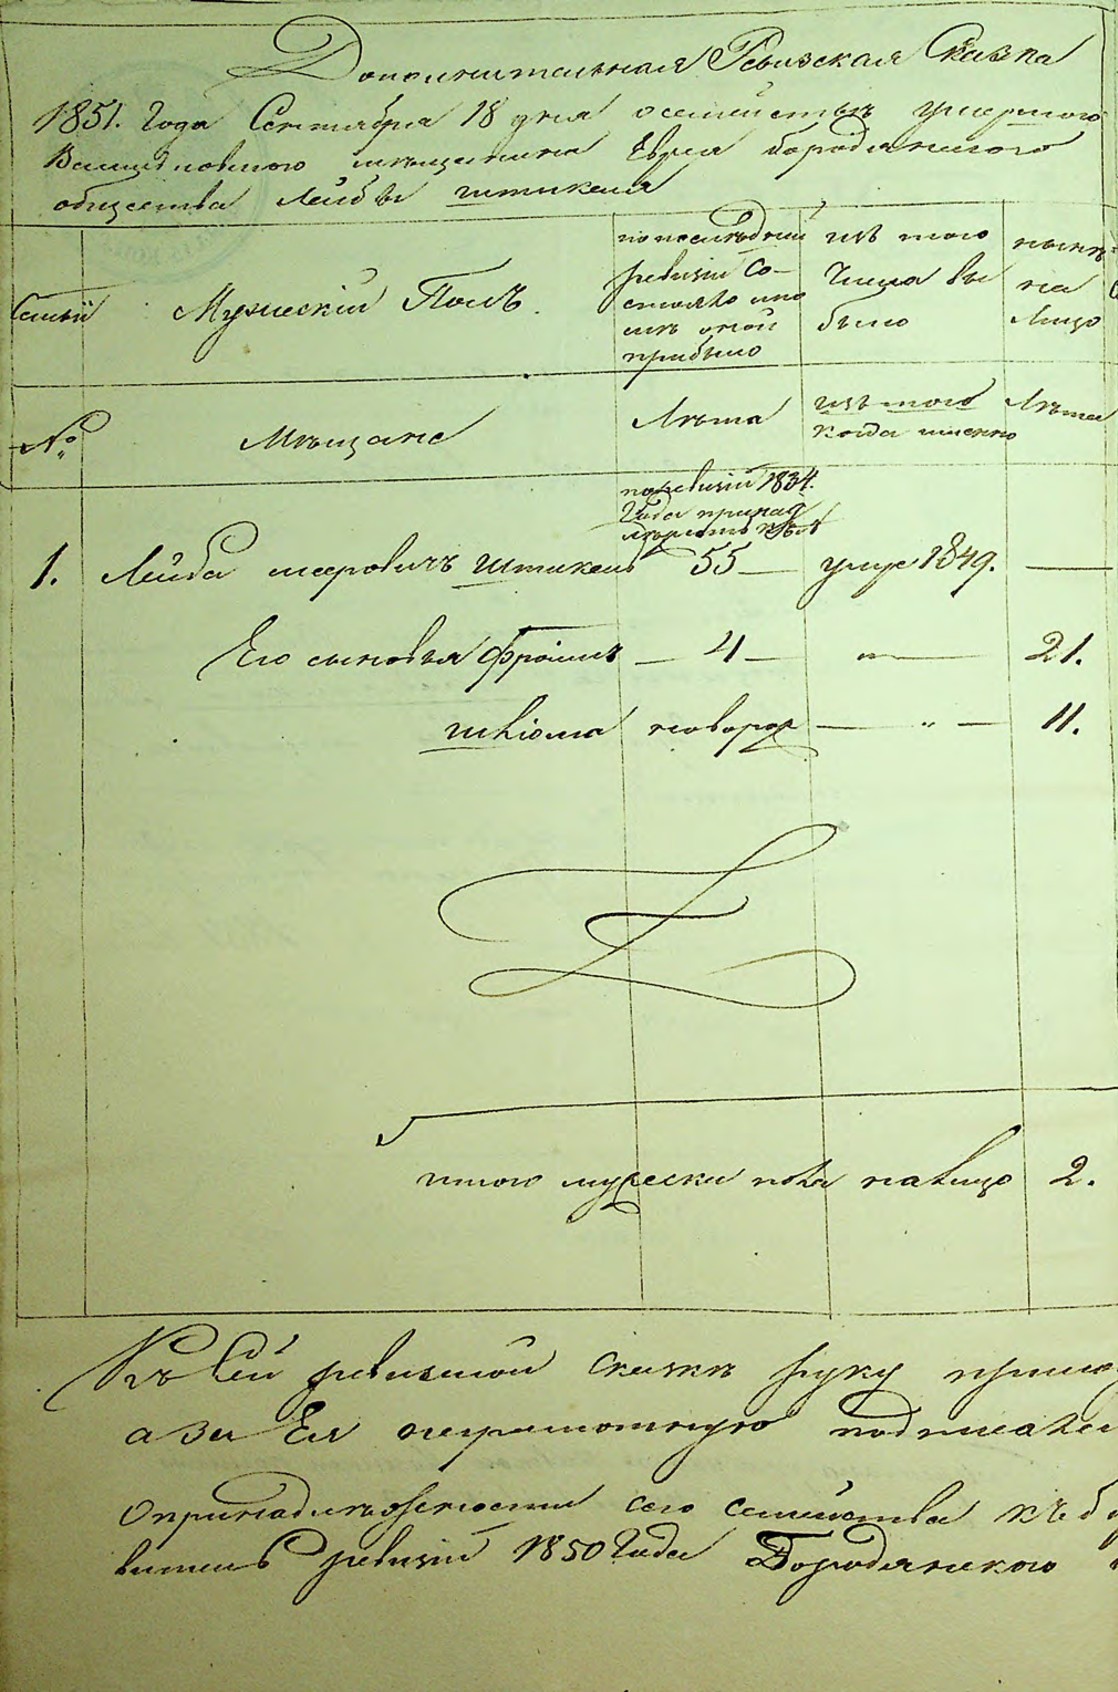 Дополнительная Ревизская Сказка
1851. Года Сентября 18 дня о семействѣ умершого
мѣщанина Еврея бородянского
общества Лейбы Штикеля
Семьи
Мужескій Полъ.
по последней
ревизіи Со-
стояло или
послѣ оной
прибыло
изъ того
Числа вы
было
нынѣ
на
Лицо
№
Мѣщане
Лѣта
изъ того
когда именно
Лѣта
по ревизіи 1834.
Года
1. Лейба меровичъ Штикель 55 умре 1849.
Его сыновья Фроимъ 4 21.
Шліома новорож 11.
итого мужеска пола на лицо 2.
Къ сей ревизкой Сказкѣ руку прило
а За Ея неграмотную подписался
О принадлежности сего семейства къ
ревизіи 1850 Года Бородянского